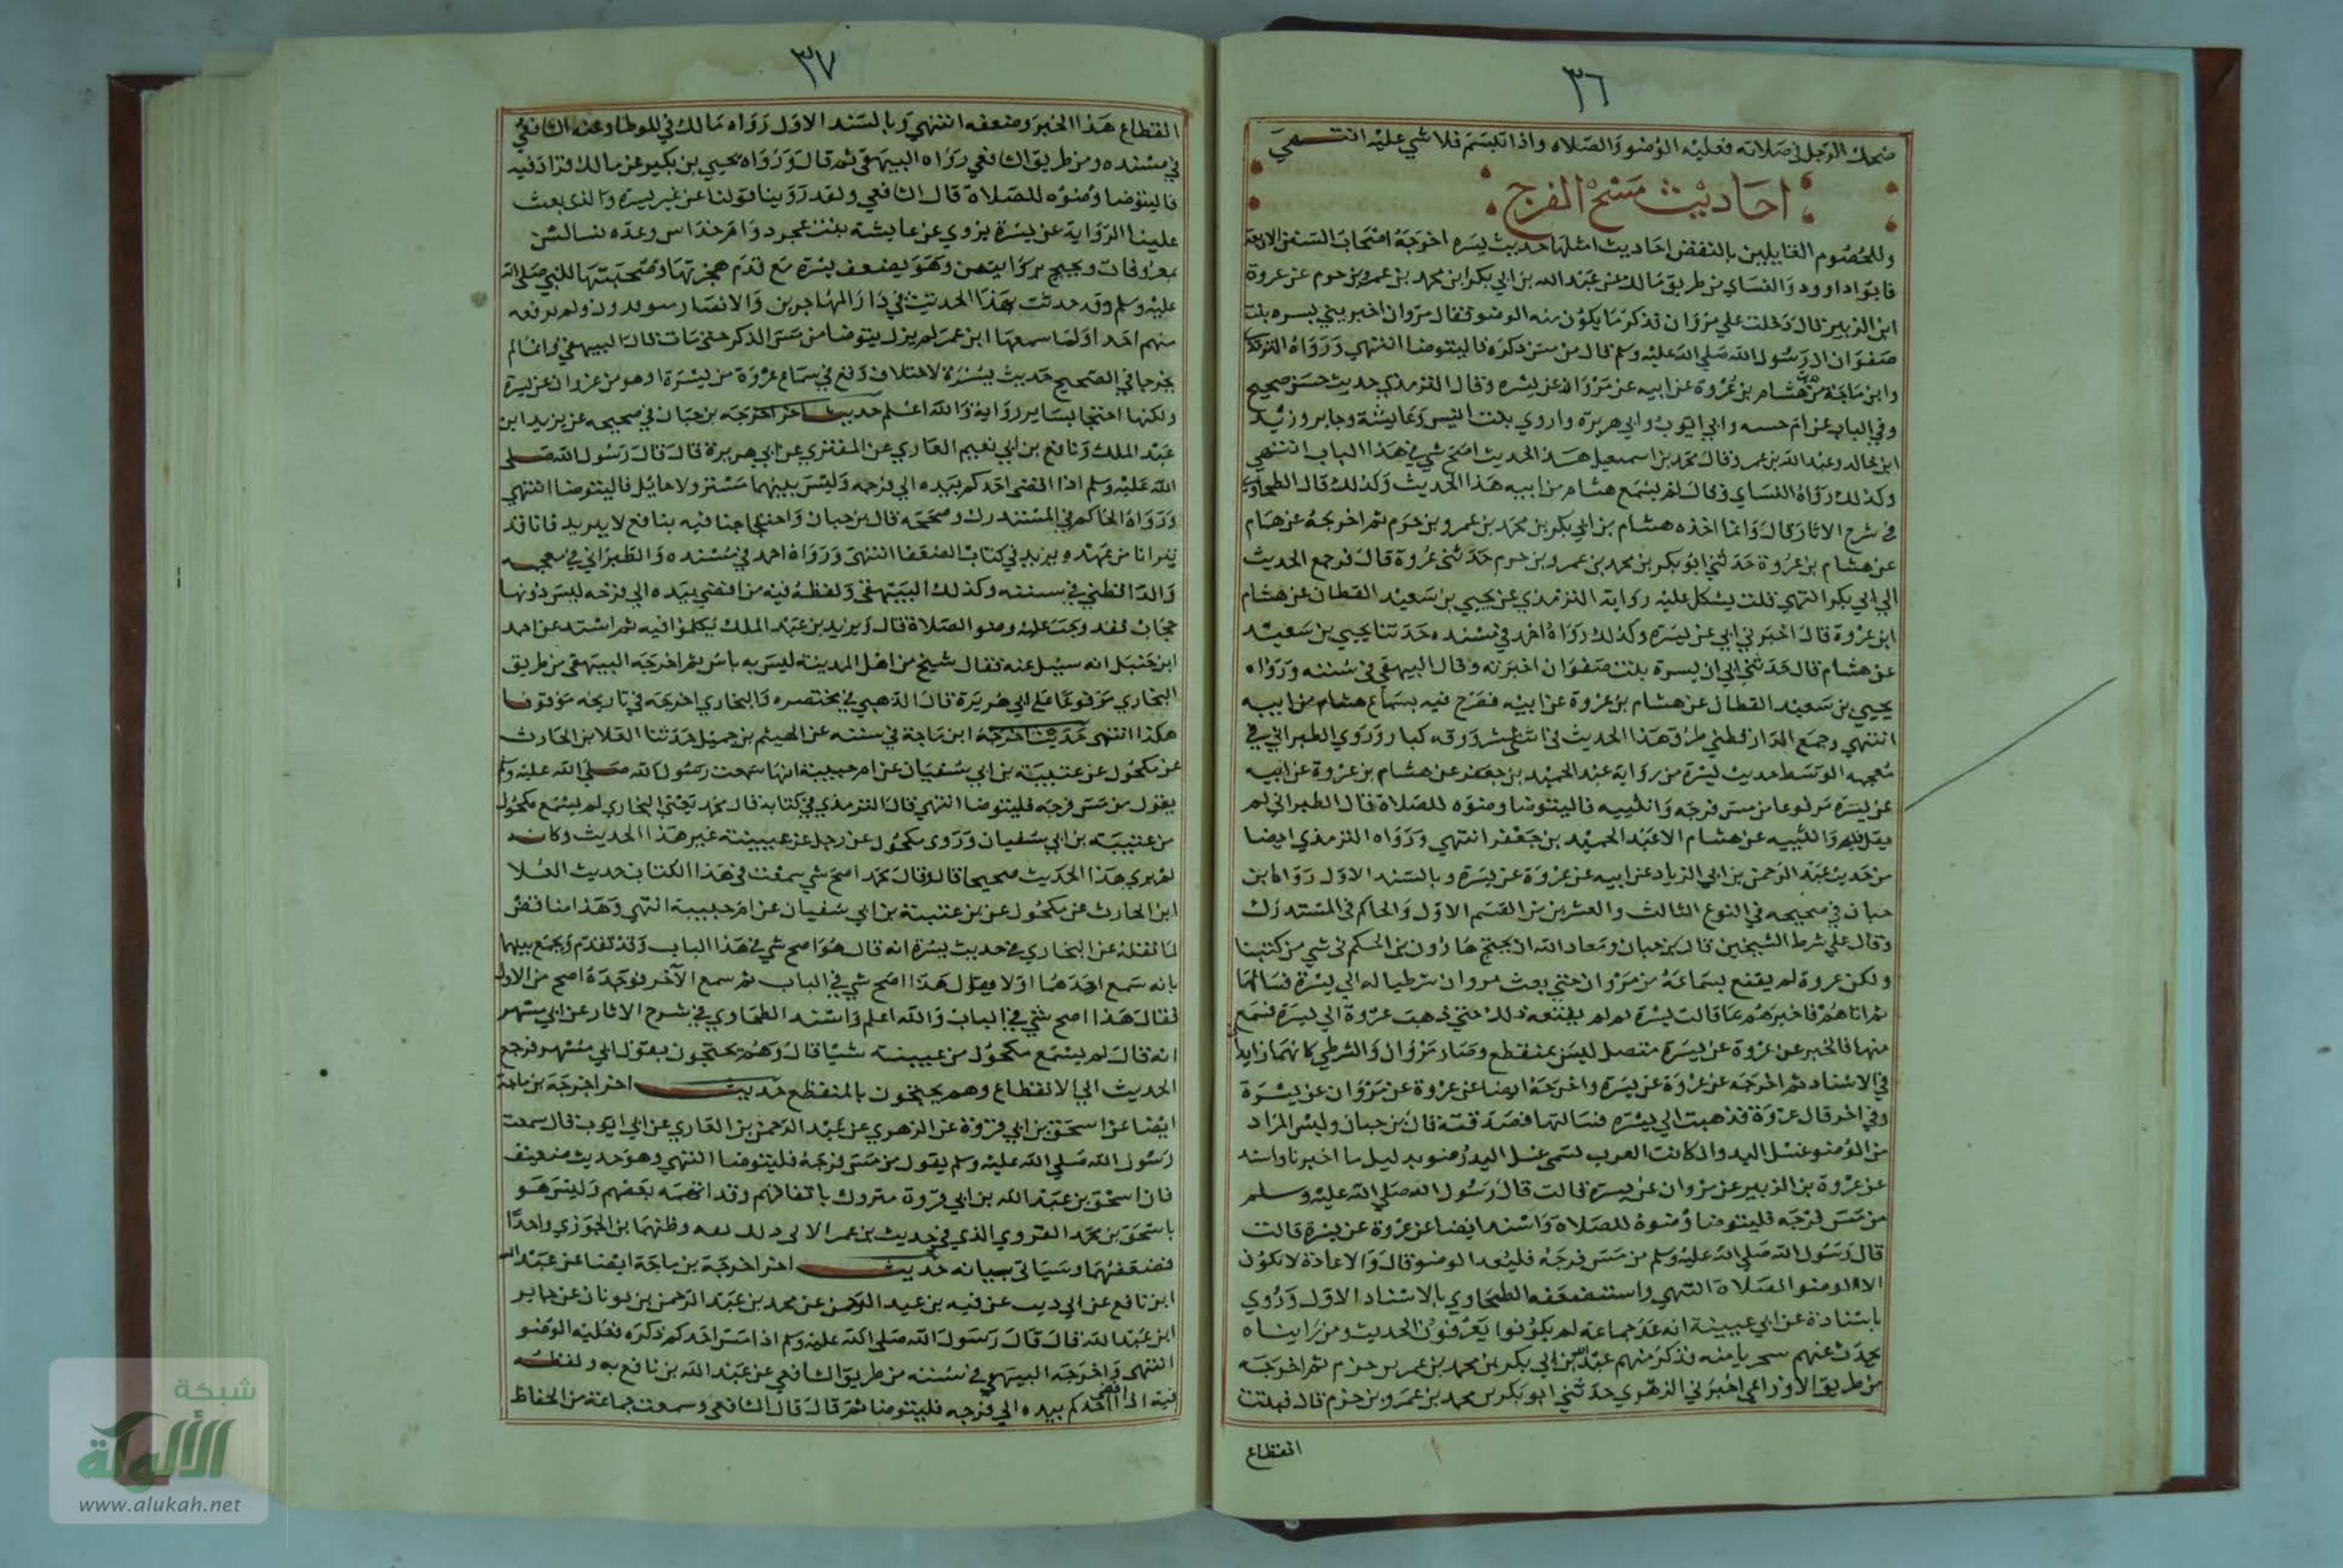 ٣٦
ضحك الرجل في صلاته فعليه الوضو والصلاه واذا تبسم فلا شي عليه انتهي
احاديث مسح الفرج
وللخصوم القايلين بالنقض احاديث امثلها حديث بسره اخرجه اصحاب السنن الاربعة
فابوا داوود والنساي من طريق مالك عن عبد الله بن ابي بكر ابن محمد بن عمرو بن حزم عن عروة
ابن الزبير قال دخلت علي مروان فذكر ما يكون منه الوضو فقال مروان اخبرتني بسره بنت
صفوان ان رسول الله صلي الله عليه وسلم قال من مس ذكره فاليتوضا انتهي ورواه الترمذي
وابن ماجة من هشام بن عروة عن ابيه عن مروان عن بسره وقال الترمذي حديث حسن صحيح
وفي الباب عن ام حبيبه وابي ايوب وابي هريرة واروي بنت انيس وعايشة وجابر وزيد
ابن خالد وعبد الله بن عمر وقال محمد بن اسمعيل هذا الحديث اصح شي في هذا الباب انتهي
وكذلك رواه النساي وقال لم يسمع هشام من ابيه هذا الحديث وكذلك قال الطحاوي
في شرح الاثار قال وانما اخذه هشام بن ابي بكر بن محمد بن عمرو بن حزم ثم اخرجه عن همام
عن هشام بن عروة حدثني ابو بكر بن محمد بن عمرو بن حزم حدثني عروة قال فرجع الحديث
الي ابي بكر انتهي قلت يشكل عليه رواية الترمذي عن يحيي بن سعيد القطان عن هشام
ابن عروة قال اخبرني ابي عن بسره وكذلك رواه احمد في مسنده حدثنا يحيي بن سعيد
عن هشام قال حدثني ابي ان بسرة بنت صفوان اخبرته وقال البيهقي في سننه ورواه
يحيي بن سعيد القطان عن هشام بن عروة عن ابيه فصرح فيه بسماع هشام من ابيه
انتهي وجمع الدارقطني طرق هذا الحديث في اثني عشر ورقه كبار وروي الطبراني في
معجمه الوسط حديث بسره من رواية عبد الحميد بن جعفر عن هشام بن عروة عن ابيه
عن بسره مرفوعا من مس فرجه وانثييه فاليتوضا وضوه للصلاة قال الطبراني لم
يقل فيه وانثييه عن هشام الا عبد الحميد بن جعفر انتهي ورواه الترمذي ايضا
من حديث عبد الرحمن بن ابي الزياد عن ابيه عن عروة عن بسره وبالسند الاول رواه ابن
حبان في صحيحه في النوع الثالث والعشرين من القسم الاول والحاكم في المستدرك
وقال علي شرط الشيخين قال بن حبان ومعاد الله ان يحتج هارون بن الحكم في شي من كتبنا
ولكن عروة لم يقنع بسماعه من مروان حتي بعث مروان شرطيا له الي بسرة فسالها
ثم اتاهم فاخبرهم عما قالت بسره ثم لم يقنعه ذلك حتي ذهب عروة الي بسرة فسمع
منها فالخبر عن عروة عن بسره متصل ليس بمنقطع وصار مروان والشرطي كانهما زايدان
في الاسناد ثم اخرجه عن عروة عن بسره واخرجه ايضا عن عروة عن مروان عن بسرة
وفي اخر قال عروة فذهبت الي بسره فسالتها فصدقته قال بن حبان وليس المراد
من الوضو غسل اليد وان كانت العرب تسمي غسل اليد وضو بدليل ما اخبرنا واسند
عن عروة بن الزبير عن مروان عن بسرة قالت قال رسول الله صلي الله عليه وسلم
من مس فرجه فليتوضا وضوه للصلاه واسند ايضا عن عروة عن بسرة قالت
قال رسول الله صلي الله عليه وسلم من مس فرجه فليعد الوضو قال والاعادة لا تكون
الا الوضو الصلاة انتهي واستضعفه الطحاوي بالاسناد الاول وروي
باسنادة عن ابي عيينة انه عد جماعة لم يكونوا يعرفون الحديث ومن رايناه
يحدث عنهم سحر يا منه فذكر منهم عبد الله بن ابي بكر بن محمد بن عمر بن حزم ثم اخرجه
من طريق الاوزاعي اخبرني الزهري حدثني ابو بكر بن محمد بن عمرو بن حزم قال فبتت
انقطاع
٣٧
انقطاع هذا الخبر وضعفه انتهي وبالسند الاول رواه مالك في الموطا وعنه الشافعي
في مسنده ومن طريق الشافعي رواه البيهقي ثم قال ورواه يحيي بن بكير عن مالك فزاد فيه
فاليتوضا وضوه للصلاة قال الشافعي ولقد روينا قولنا عن غير بسرة والذي بعث
علينا الرواية عن بسرة يروي عن عايشة بنت عجرد وام خداس وعدة نسا لسن
بمعروفات ويحتج بروايتهن وهو يضعف بسرة مع قدم هجرتها وصحبتها للنبي صلي الله
عليه وسلم وقد حدثت بهذا الحديث في دار المهاجرين والانصار متوافرون ولم يرفعه
منهم احد اولما سمعها ابن عمر لم يزل يتوضا من مس الذكر حتي مات قال البيهقي وانما لم
يخرجا في الصحيح حديث بسرة لاختلاف وقع في سماع عروة من بسرة او هو من عروان عن بسرة
ولكنهما احتجا بساير رواية والله اعلم حديث اخر اخرجه بن حبان في صحيحه عن يزيد ابن
عبد الملك ونافع بن ابي نعيم القاري عن المقبري عن ابي هريرة قال قال رسول الله صلي
الله عليه وسلم اذا افضي احدكم بيده الي فرجه وليس بينهما ستر ولا حايل فاليتوضا انتهي
ورواه الحاكم في المستدرك وصححه قال بن حبان واحتجاجنا فيه بنافع لا بيزيد فانا قد
تبرانا من عهدة يزيد في كتاب الضعفا انتهي ورواه احمد في مسنده والطبراني في معجمه
والدارقطني في سننه وكذلك البيهقي ولفظه فيه من افضي بيده الي فرجه ليس دونها
حجاب فقد وجب عليه وضو الصلاة قال ويزيد بن عبد الملك تكلموا فيه ثم اسند عن احمد
ابن حنبل انه سيل عنه فقال شيخ من اهل المدينة ليس به باس ثم اخرجه البيهقي من طريق
البخاري موقوفا علي ابي هريرة قال الذهبي في مختصره والبخاري اخرجه في تاريخه موقوفا
هكذا انتهي حديث اخرجه ابن ماجة في سننه عن الهيثم بن جميل حدثنا العلا بن الحارث
عن مكحول عن عنبسة بن ابي سفيان عن ام حبيبة انها سمعت رسول الله صلي الله عليه وسلم
يقول من مس فرجه فليتوضا انتهي قال الترمذي في كتابه قال محمد يعني البخاري لم يسمع مكحول
من عنبسة بن ابي سفيان وروي مكحول عن رجل عن عنبسة غير هذا الحديث وكانه
لم يري هذا الحديث صحيحا قال وقال محمد اصح شي سمعت في هذا الكتاب حديث العلا
ابن الحارث عن مكحول عن بن عنبسة بن ابي سفيان عن ام حبيبة انتهي وهذا مناقض
لما نقله عن البخاري في حديث بسرة انه قال هو اصح شي في هذا الباب وقد تقدم ويجمع بينهما
بانه سمع احدهما اولا فقال هذا اصح شي في الباب ثم سمع الآخر فوجده اصح من الاول
فقال هذا اصح شي في الباب والله اعلم واسند الطحاوي في شرح الاثار عن ابي مسهر
انه قال لم يسمع مكحول من عنبسة شيا قال وهم يحتجون بقول ابي مسهر فرجع
الحديث الي الانقطاع وهم يحتجون بالمنقطع حديث اخر اخرجه بن ماجة
ايضا عن اسحق بن ابي فروة عن الزهري عن عبد الرحمن بن القاري عن ابي ايوب قال سمعت
رسول الله صلي الله عليه وسلم يقول من مس فرجه فليتوضا انتهي وهو حديث ضعيف
فان اسحق بن عبد الله بن ابي فروة متروك باتفاقهم وقد اتهمه بعضهم وليس هو
باسحق بن محمد الفروي الذي في حديث بن عمر الاتي وظنهما بن الجوزي واحدا
فضعفهما وسياتي بيانه حديث اخر اخرجه بن ماجة ايضا عن عبد الله
ابن نافع عن ابي ذيب عن عقبه بن عبد الرحمن عن محمد بن عبد الرحمن بن ثوبان عن جابر
ابن عبد الله قال قال رسول الله صلي الله عليه وسلم اذا مس احدكم ذكره فعليه الوضو
انتهي واخرجه البيهقي في سننه من طريق الشافعي عن عبد الله بن نافع به ولفظه
فيه اذا افضي احدكم بيده الي فرجه فليتوضا ثم قال قال الشافعي وسمعت جماعة من الحفاظ
شبكة
الألوكة
www.alukah.net